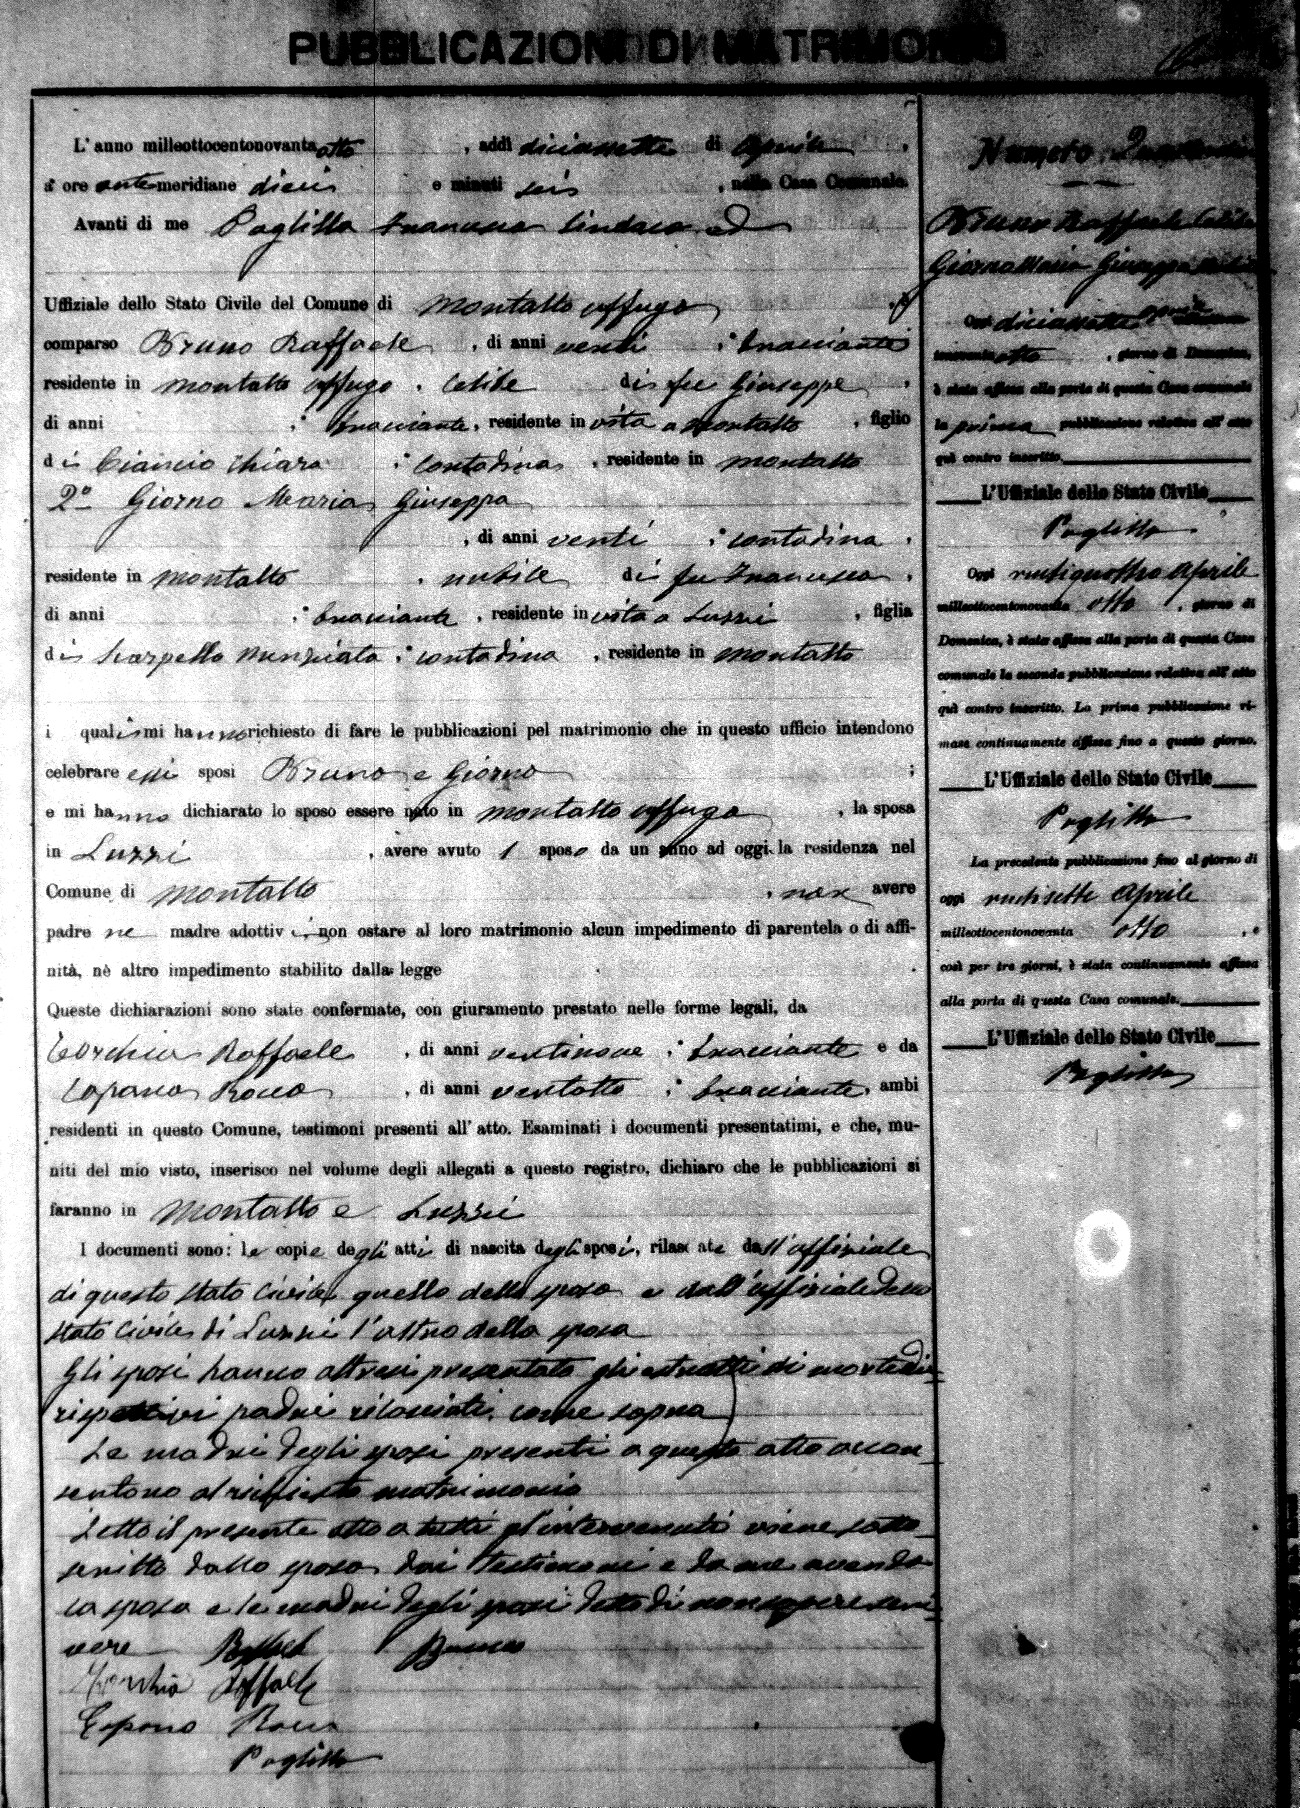 PUBBLICAZIONI DI MATRIMONIO
L'anno milleottocentonovantaotto, addì diciassette di Aprile,
a ore antemeridiane dieci e minuti seis, nella Casa Comunale.
Avanti di me Sindaco ed
Uffiziale dello Stato Civile del Comune di Montalto Uffugo
comparso Bruno Raffaele, di anni venti; bracciante
residente in Montalto Uffugo, celibe di fu Giuseppe,
di anni ; bracciante, residente in vita a Montalto, figlio
di Ciancio Chiara; contadina, residente in Montalto
2º Giorno Maria Giuseppa
, di anni venti; contadina,
residente in Montalto, nubile di fu Francesco,
di anni ; bracciante, residente in vita a Luzzi, figlia
di Scarpello Nunziata; contadina, residente in Montalto
i quali mi hanno richiesto di fare le pubblicazioni pel matrimonio che in questo ufficio intendono
celebrare essi sposi Bruno e Giorno;
e mi hanno dichiarato lo sposo essere nato in Montalto Uffugo, la sposa
in Luzzi, avere avuto l sposo da un anno ad oggi la residenza nel
Comune di Montalto, non avere
padre ne madre adottivi, non ostare al loro matrimonio alcun impedimento di parentela o di affi-
nità, nè altro impedimento stabilito dalla legge.
Queste dichiarazioni sono state confermate, con giuramento prestato nelle forme legali, da
Torchia Raffaele, di anni ventinove; bracciante e da
Capano Rocco, di anni ventotto; bracciante, ambi
residenti in questo Comune, testimoni presenti all'atto. Esaminati i documenti presentatimi, e che, mu-
niti del mio visto, inserisco nel volume degli allegati a questo registro, dichiaro che le pubblicazioni si
faranno in Montalto e Luzzi
I documenti sono: le copie degli atti di nascita degli sposi, rilasciate dall'uffiziale
di questo Stato Civile quello dello sposo e dall'uffiziale dello
Stato Civile di Luzzi l'altro della sposa
Gli sposi hanno altresì presentato gli estratti di morte dei
rispettivi padri rilasciati come sopra
Le madri degli sposi presenti a questo atto accon
sentono al richiesto matrimonio
Letto il presente atto a tutti gl'intervenuti viene sotto
scritto dallo sposo dai testimoni e da me avendo
la sposa e le madri degli sposi detto di non sapere scri
vere Raffaele Bruno
Torchia Raffaele
Capano Rocco
Numero
Bruno Raffaele Celibe
Giorno Maria Giuseppa Nubile
Oggi diciassette Aprile
otto, giorno di Domenica,
è stata affissa alla porta di questa Casa comunale
la prima pubblicazione relativa all'atto
quì contro inscritto.
L'Uffiziale dello Stato Civile
Oggi ventiquattro Aprile
milleottocentonovanta otto, giorno di
Domenica, è stata affissa alla porta di questa Casa
comunale la seconda pubblicazione relativa all'atto
quì contro inscritto. La prima pubblicazione ri-
mase continuamente affissa fino a questo giorno.
L'Uffiziale dello Stato Civile
La precedente pubblicazione fino al giorno di
oggi ventisette Aprile
milleottocentonovanta otto, e
così per tre giorni, è stata continuamente affissa
alla porta di questa Casa comunale.
L'Uffiziale dello Stato Civile